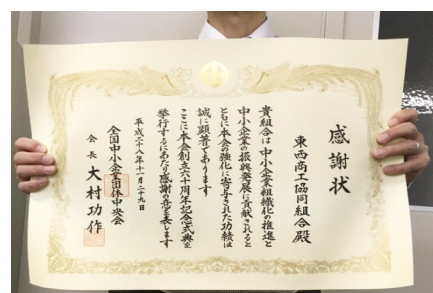 感謝状
東西商工協同組合殿
貴組合は中小企業組織化の推進と
中小企業の振興発展に貢献されると
ともに本会の強化に寄与された功績は
誠に顕著であります
ここに本会創立六十周年記念式典を
挙行するにあたり感謝の意を表します
平成二十八年十一月二十九日
全国中小企業団体中央会
会長 大村功作